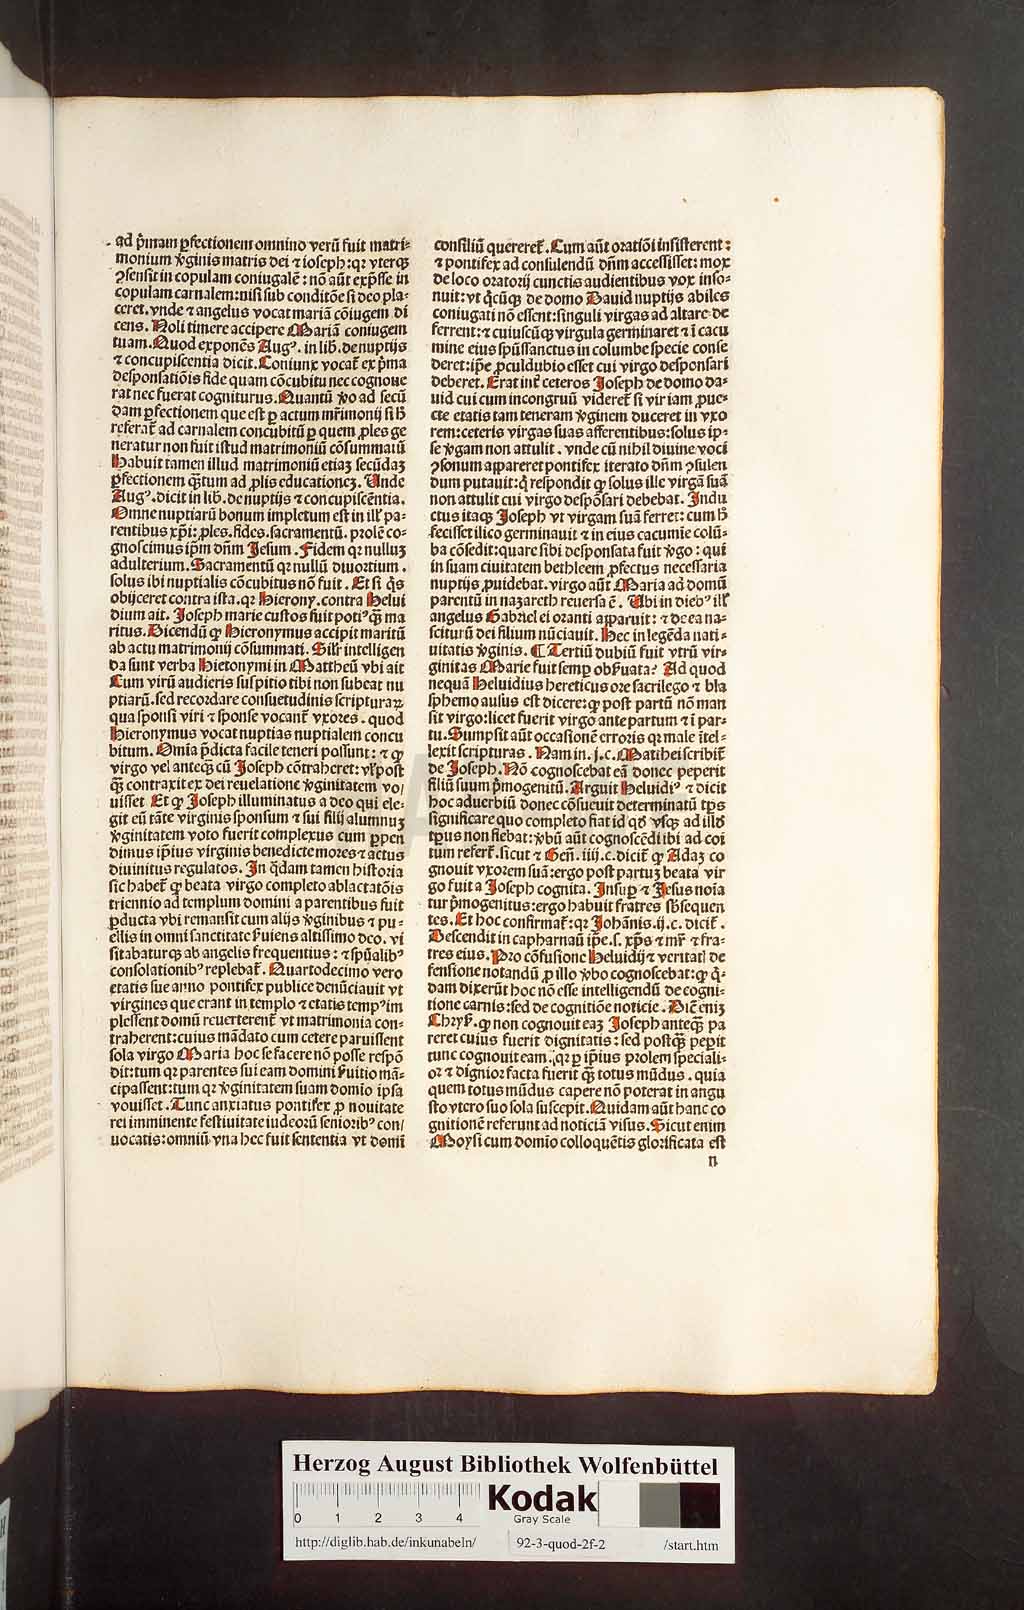 ad p̄mam ꝑfectionem omnino verū fuit matri-
monium v̾ginis matris dei ⁊ ioseph: qꝛ vterqꝫ
ꝯsensit in copulam coniugalē: nō aūt exp̄sse in
copulam carnalem: nisi sub conditōe si deo pla-
ceret. vnde ⁊ angelus vocat mariā cōiugem di
cens. Noli timere accipere Mariā coniugem
tuam. Quod exponēs Augꝰ. in lib. de nuptijs
⁊ concupiscentia dicit. Coniunx vocat̄ ex p̄ma
desponsatiōis fide quam cōcubitu nec cognoue
rat nec fuerat cogniturus. Quantū v̾o ad secū
dam ꝑfectionem que est ꝑ actum mr̄imonij si h̄
referat̄ ad carnalem concubitū ꝑ quem ꝓles ge
neratur non fuit istud matrimoniū cōsummatū
Habuit tamen illud matrimoniū etiaꝫ secūdaꝫ
ꝑfectionem q̄ꝫtum ad ꝓlis educationeꝫ. Unde
Augꝰ. dicit in lib. de nuptijs ⁊ concupiscētia.
Omne nuptiarū bonum impletum est in ill̄ pa-
rentibus xp̄i: ꝓles. fides. sacramentū. prolē co-
gnoscimus ip̄m dn̄m Jesum. Fidem qꝛ nulluꝫ
adulterium. Sacramentū qꝛ nullū diuortium.
solus ibi nuptialis cōcubitus nō fuit. Et si q̄s
obijceret contra ista. qꝛ Hierony. contra Helui
dium ait. Joseph marie custos fuit potiꝰ q̄ꝫ ma
ritus. Dicendū ꝙ Hieronymus accipit maritū
ab actu matrimonij cōsummati. Sil̄r intelligen
da sunt verba Hietonymi in Mattheū vbi ait
Cum virū audieris suspitio tibi non subeat nu
ptiarū. sed recordare consuetudinis scripturaꝝ
qua sponsi viri ⁊ sponse vocant̄ vxores. quod
Hieronymus vocat nuptias nuptialem concu
bitum. Omīa p̄dicta facile teneri possunt: ⁊ ꝙ
virgo vel anteqꝫ cū Joseph cōtraheret: vl̄ post
q̄ꝫ contraxit ex dei reuelatione v̾ginitatem vo/
uisset Et ꝙ Joseph illuminatus a deo qui ele-
git eū tāꝫte virginis sponsum ⁊ sui filij alumnuꝫ
v̾ginitatem voto fuerit complexus cum ꝑpen
dimus ip̄ius virginis benedicte mores ⁊ actus
diuinitus regulatos. Jn q̄dam tamen historia
sic habet̄ ꝙ beata virgo completo ablactatōis
triennio ad templum domini a parentibus fuit
ꝑducta vbi remansit cum alijs v̾ginibus ⁊ pu-
ellis in omni sanctitate s̾uiens altissimo deo. vi
sitabaturqꝫ ab angelis frequentius: ⁊ sp̄ualibꝰ
consolationibꝰ replebat̄. Quartodecimo vero
etatis sue anno pontifex publice denūciauit vt
virgines que erant in templo ⁊ etatis tempꝰ im
plessent domū reuerterent̄ vt matrimonia con-
traherent: cuius mādato cum cetere paruissent
sola virgo Maria hoc se facere nō posse respō
dit: tum qꝛ parentes sui eam domini s̾uitio mā-
cipassent: tum qꝛ v̾ginitatem suam domīo ipsa
vouisset. Tunc anxiatus pontifex ꝓ nouitate
rei imminente festiuitate iudeorū senioribꝰ con/
uocatis: omniū vna hec fuit sententia vt domī
consiliū quereret̄. Cum aūt oratiōi insisterent:
⁊ pontifex ad consulendū dn̄m accessisset: mox
de loco oratorij cunctis audientibus vox inso-
nuit: vt q̄cūqꝫ de domo Dauid nuptijs abiles
coniugati nō essent: singuli virgas ad altare de
ferrent: ⁊ cuiuscūqꝫ virgula germinaret ⁊ ī cacu
mine eius sp̄ussanctus in columbe specie conse
deret: ip̄e ꝓculdubio esset cui virgo desponsari
deberet. Erat int̄ ceteros Joseph de domo da-
uid cui cum incongruū videret̄ si vir iam ꝓue-
cte etatis tam teneram v̾ginem duceret in vxo
rem: ceteris virgas suas afferentibus: solus ip-
se v̾gam non attulit. vnde cū nihil diuine voci
ꝯsonum appareret pontifex iterato dn̄m ꝯsulen
dum putauit: q̄ respondit ꝙ solus ille virgā suā
non attulit cui virgo despōsari debebat. Jndu
ctus itaqꝫ Joseph vt virgam suā ferret: cum h̄
fecisset ilico germinauit ⁊ in eius cacumie colū-
ba cōsedit: quare sibi desponsata fuit v̾go: qui
in suam ciuitatem bethleem ꝓfectus necessaria
nuptijs ꝓuidebat. virgo aūt Maria ad domū
parentū in nazareth reuersa ē. Ubi in diebꝰ ill̄
angelus Gabriel ei oranti apparuit: ⁊ de ea na-
sciturū dei filium nūciauit. Hec in legēda nati-
uitatis v̾ginis. ¶ Tertiū dubiū fuit vtrū vir-
ginitas Marie fuit semꝑ obs̾uata? Ad quod
nequā Heluidius hereticus ore sacrilego ⁊ bla
sphemo ausus est dicere: ꝙ post partū nō man
sit virgo: licet fuerit virgo ante partum ⁊ ī par-
tu. Sumpsit aūt occasionē erroris qꝛ male ītel-
lexit scripturas. Nam in .j.c. Matthei scribit̄
de Joseph. Nō cognoscebat eā donec peperit
filiū suum p̄mogenitū. Arguit Heluidiꝰ ⁊ dicit
hoc aduerbiū donec cōsueuit determinatū tp̄s
significare quo completo fiat id qd̄ vsqꝫ ad illd̄
tp̄us non fiebat: v̾bū aūt cognoscēdi ibi ad coi
tum refert̄. sicut ⁊ Gen̄. iiij.c. dicit̄ ꝙ Adaꝫ co
gnouit vxorem suā: ergo post partuꝫ beata vir
go fuit a Joseph cognita. Jnsuꝑ ⁊ Jesus noīa
tur p̄mogenitus: ergo habuit fratres sb̄sequen
tes. Et hoc confirmat̄: qꝛ Johānis. ij.c. dicit̄.
Descendit in capharnaū ip̄e. s. xp̄s ⁊ mr̄ ⁊ fra-
tres eius. Pro cōfusione Heluidij ⁊ veritatꝭ de
fensione notandū ꝓ illo v̾bo cognoscebat: ꝙ q̄-
dam dixerūt hoc nō esse intelligendū de cogni-
tione carnis: sed de cognitiōe noticie. Dic̄ eniꝫ
Chrys̄. ꝙ non cognouit eaꝫ Joseph anteqꝫ pa
reret cuius fuerit dignitatis: sed postqꝫ peꝑit
tunc cognouit eam. qꝛ ꝑ ip̄ius prolem speciali-
or ⁊ dignior facta fuerit q̄ꝫ totus mūdus. quia
quem totus mūdus capere nō poterat in angu
sto vtero suo sola suscepit. Quidam aūt hanc co
gnitionē referunt ad noticiā visus. Sicut enim
Moysi cum domīo colloquētis glorificata est
n
Herzog August Bibliothek Wolfenbüttel
0 1 2 3 4
Kodak
Gray Scale
http://diglib.hab.de/inkunabeln/ 92-3-quod-2f-2 /start.htm